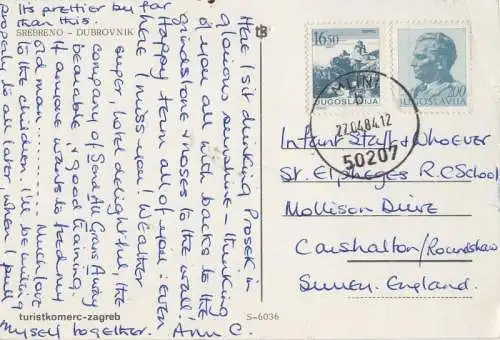 Its prettier by far
than this.
SREBRENO - DUBROVNIK
Here I sit drinking Prosek in
glorious sunshine - thinking
of you all with backs to the
grindstone & noses to the wall!
Happy team all of you: even
Here I miss you! Weather
super, hotel delightful, the
company of Send All Grans Away
bearable & good training
if anyone wants to
old man....... Much love
to the children. I'll be writing
properly to all later, when I pull
myself together. Ann C.
turistkomerc-zagreb
S-6036
16.50
JUGOSLAVIJA
2.00
JUGOSLAVIJA
MLINI
27.04.84.12
50207
Infant Staff & Whoever
St. Elpheges R.C School
Mollison Drive
Carshalton/Roundshaw
Surrey. England.